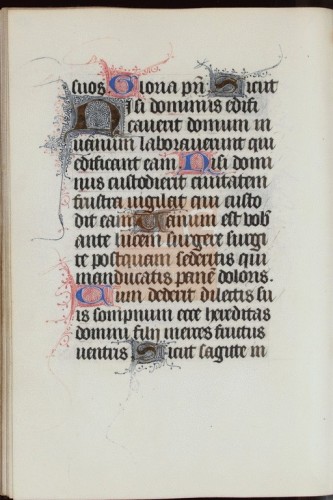 suos Gloria pri Sicut
Nisi dominus edifi
cauerit domum in
uanum laborauerunt qui
edificant eam Nisi domi
nus custodierit ciuitatem
frustra uigilat qui custo
dit eam Vanum est vob
ante lucem surgere surgi
te postquam sederitis qui
manducatis pane doloris.
Cum dederit dilectis su
is sompnum ecce hereditas
domini filii merces fructus
uentris Sicut sagitte in